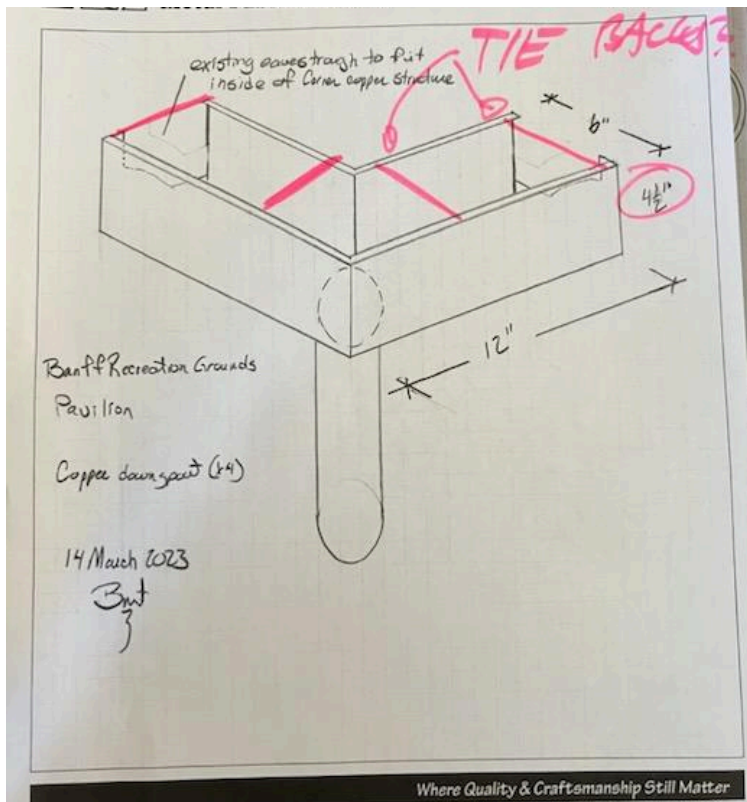 TIE BACKS?
existing eavestrough to fit
inside of Corner copper structure
6"
4½"
12"
Banff Recreation Grounds
Pavilion
Copper downspout (x4)
14 March 2023
Where Quality & Craftsmanship Still Matter